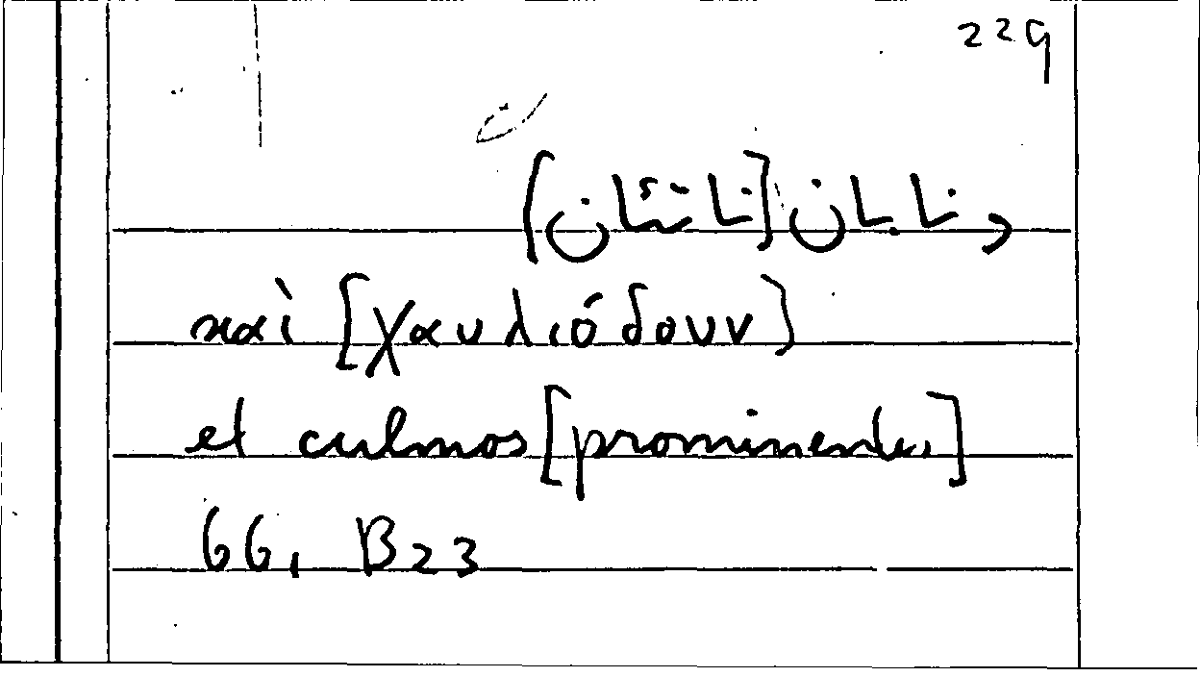 229
ونابان [ناتئان]
καὶ [χαυλιόδουν]
et culmos [prominentes]
66, B23